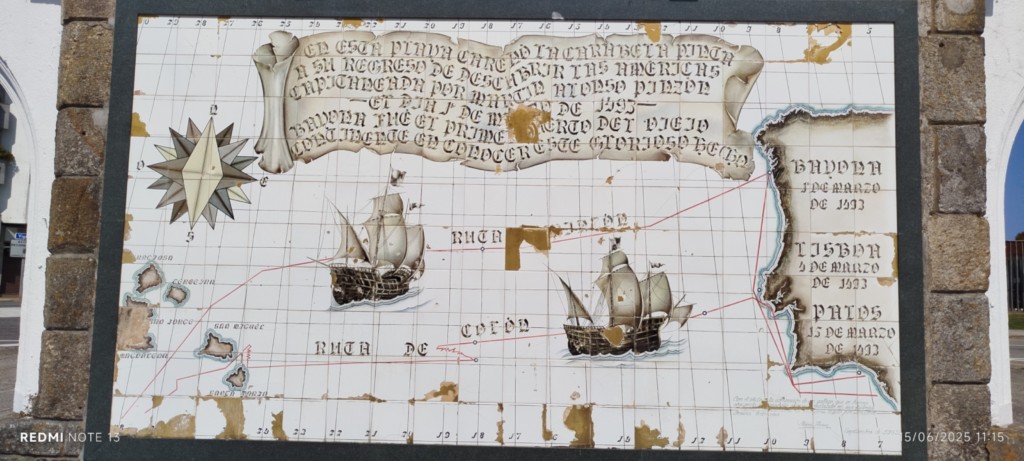 EN ESTA PLAYA CARENO LA CARABELA PINTA
A SU REGRESO DE DESCUBRIR LAS AMERICAS
CAPITANEADA POR MARTIN ALONSO PINZON
EL DIA 1º DE M DE 1493
BAYONA FUE EL PRIME UERTO DEL VIEJO
CONTINENTE EN CONOCER ESTE GLORIOSO HECHO
N
O
E
S
BAYONA
1º DE MARZO
DE 1493
LISBOA
4 DE MARZO
DE 1493
PALOS
15 DE MARZO
DE 1493
RUTA
PINZON
RUTA DE COLÓN
GRACIOSA
TERCEIRA
SAN JORGE
SAN MIGUEL
SANTA MARIA
REDMI NOTE 13
15/06/2025 11:15